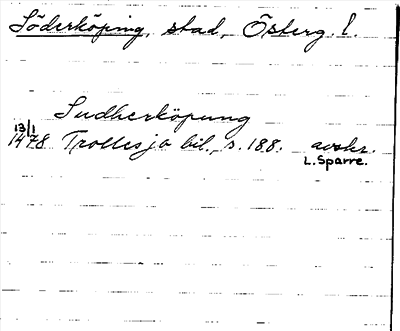 Söderköping, stad, Österg. l.
Sudherköpung
13/1
1478 Trollesjö bil., s. 188. avskr.
L. Sparre.